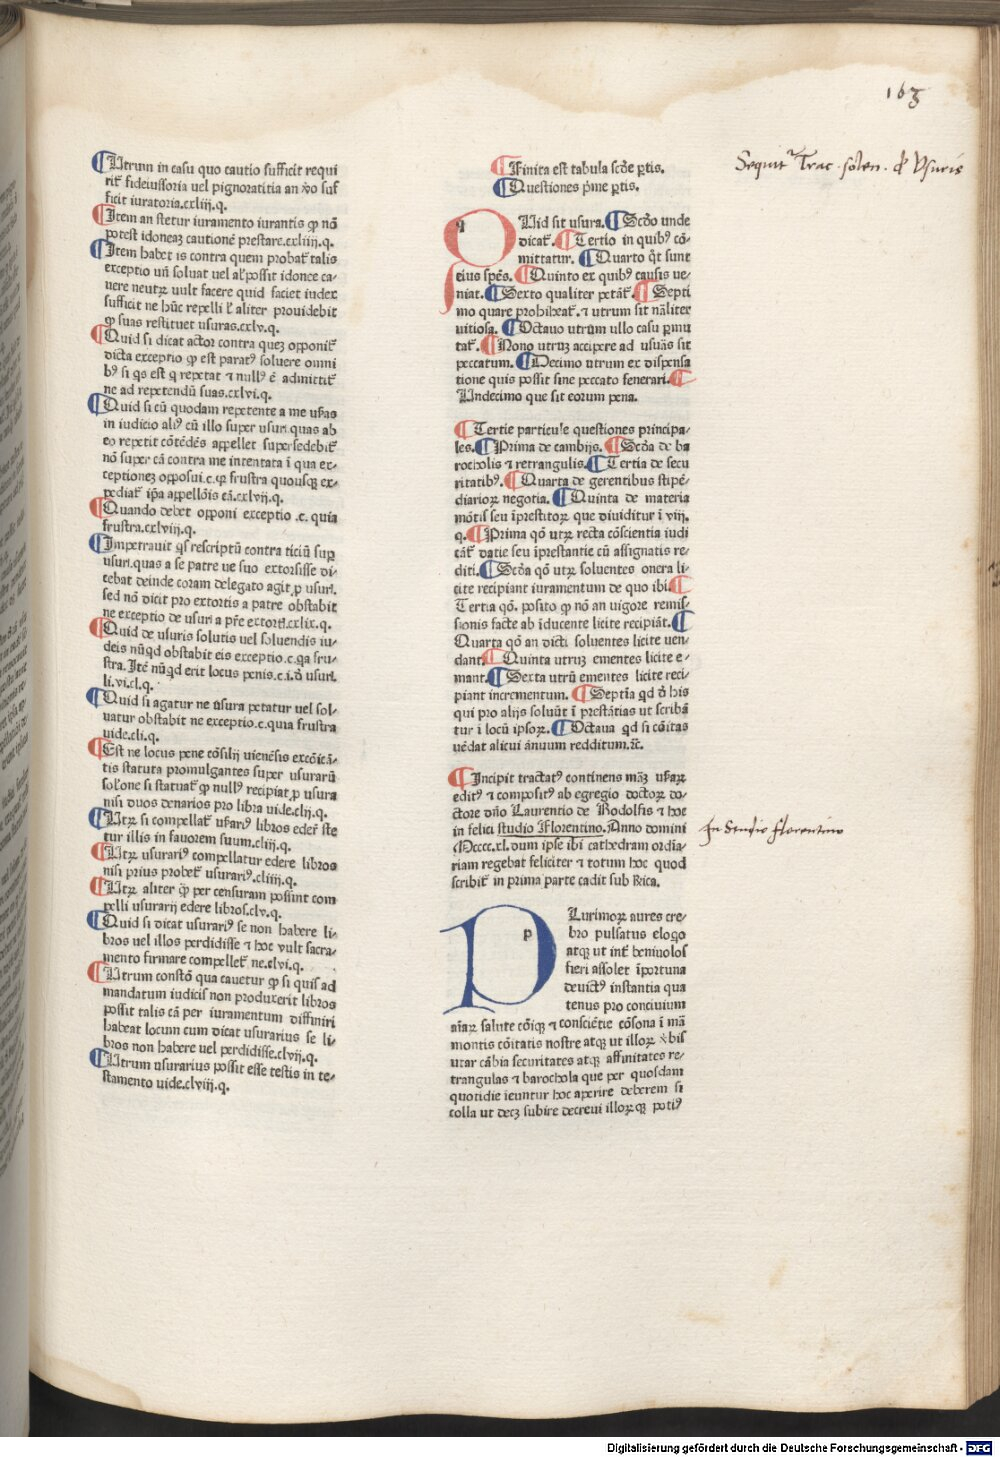 163
Sequitr Trac. solen. de Vsuris
¶Utrum in casu quo cautio sufficit requi
rit᷑ fideiussoria uel pignoratitia an v̾o suf
ficit iuratoria.cxliij.q.
¶Item an stetur iuramento iurantis ꝙ nō
potest idoneaꝫ cautionē prestare.cxliiij.q.
¶Item habet is contra quem probat᷑ talis
exceptio uñ soluat uel al᷑ possit idonee ca⸗
uere neutꝝ uult facere quid faciet iudex
sufficit ne hūc repelli ꝉ aliter prouidebit
ꝙ suas restituet usuras.cxlv.q.
¶Quid si dicat actor contra queꝫ opponit᷑
dicta exceptio ꝙ est paratꝰ soluere omni
bꝰ si q̇s est q̇ repetat ⁊ nullꝰ ē admittit᷑
ne ad repetendū suas.cxlvi.q.
¶Quid si cū quodam repetente a me usuras
in iudicio aliꝰ cū illo super usuri.quas ab
eo repetit cōtēdēs appellet supersedebit᷑
nō super cā contra me intentata ī qua ex⸗
ceptioneꝫ opposui.e.ꝙ frustra quousqꝫ ex⸗
pediat᷑ ip̄a appellōis cā.cxlvij.q.
¶Quando debet opponi exceptio .e. quia
frustra.cxlviij.q.
¶Impetrauit q̇s rescriptū contra ticiū suꝑ
usuri.quas a se patre ue suo extorsisse di⸗
cebat deinde coram delegato agit ꝓ usuri.
sed nō dicit pro extortis a patre obstabit
ne exceptio de usuri a pr̄e extorti.cxlix.q.
¶Quid de usuris solutis uel soluendis iu⸗
deis nūqd obstabit eis exceptio.e.qa fru⸗
stra. Itē nūqd erit locus penis.c.i.ð usuri.
li.vi.cl.q.
¶Quid si agatur ne usura petatur uel sol⸗
uatur obstabit ne exceptio.e.quia frustra
uide.cli.q.
¶Est ne locus pene cōsilij uienēsis excōicā⸗
tis statuta promulgantes super usurarū
sol'one si statuat᷑ ꝙ nullꝰ recipiat ꝓ usura
nisi duos denarios pro libra uide.clij.q.
¶Utꝝ si compellat᷑ usurariꝰ libros eder̄ ste
tur illis in fauorem suum.cliij.q.
¶Utꝝ usurariꝰ compellatur edere libros
nisi prius probet᷑ usurariꝰ.cliiij.q.
¶Utꝝ aliter q̄ꝫ per censuram possint com
pelli usurarij edere libros.clv.q.
¶Quid si dicat usurariꝰ se non habere li⸗
bros uel illos perdidisse ⁊ hoc vult sacra⸗
mento firmare compellet᷑ ne.clvi.q.
¶Utrum constō qua cauetur ꝙ si quis ad
mandatum iudicis non produxerit libros
possit talis cā per iuramentum diffiniri
habeat locum cum dicat usurarius se li⸗
bros non habere uel perdidisse.clvij.q.
¶Utrum usurarius possit esse testis in te⸗
stamento uide.clviij.q.
¶Finita est tabula scd̄e ꝑtis.
¶Questiones p̄me ꝑtis.
q Uid sit usura.¶Scd̄o unde
dicat᷑.¶Tertio in quibꝰ cō⸗
mittatur. ¶Quarto q̊t sunt
eius spēs.¶Quinto ex quibꝰ causis ue⸗
niat.¶Sexto qualiter petāt᷑.¶Septi
mo quare prohibeāt᷑.⁊ utrum sit nāliter
uitiosa. ¶Octauo utrum ullo casu ꝑmu
tat᷑.¶Nono utruꝫ accipere ad usuras sit
peccatum.¶Decimo utrum ex dispensa
tione quis possit sine peccato fenerari.¶
Undecimo que sit eorum pena.
¶Tertie particule questiones principa⸗
les.¶Prima de cambijs.¶Scd̄a de ba
rocholis ⁊ retrangulis.¶Tertia de secu
ritatibꝰ.¶Quarta de gerentibus stipē⸗
diarioꝝ negotia. ¶Quinta de materia
mōtis seu īprestitoꝝ que diuiditur ī viij.
q.¶Prima qō utꝝ recta cōscientia iudi
cāt᷑ datie seu īprestantie cū assignatis re⸗
diti.¶Scd̄a qō utꝝ soluentes onera li⸗
cite recipiant iuramentum de quo ibi.¶
Tertia qō. posito ꝙ nō an uigore remis⸗
sionis facte ab īducente licite recipiāt.¶
Quarta qō an dicti soluentes licite uen⸗
dant.¶Quinta utruꝫ ementes licite e⸗
mant.¶Sexta utrū ementes licite reci⸗
piant incrementum. ¶Septīa qd ð his
qui pro alijs soluūt ī prestātias ut scribā
tur ī locū ipsoꝝ.¶Octaua qd si cōitas
uēdat alicui ānuum redditum.ꝛc̄.
¶Incipit tractatꝰ continens māꝫ usuraꝝ
editꝰ ⁊ compositꝰ ab egregio doctoꝝ do⸗
ctore dño Laurentio de Rodolfis ⁊ hoc
in felici studio Florentino. Anno domini
Mcccc.xl.dum ipse ibi cathedram ordia⸗
riam regebat feliciter ⁊ totum hoc quod
scribit᷑ in prima parte cadit sub R̄ica.
In Studio florentino
p Lurimoꝝ aures cre⸗
bro pulsatus elogo
atqꝫ ut int̄ beniuolos
fieri assolet īportuna
deuictꝰ instantia qua
tenus pro conciuium
aīaꝝ salute cōiqꝫ ⁊ consciētie cōsona ī mā
montis cōitatis nostre atqꝫ ut illoꝝ v̾bis
utar cābia securitates atqꝫ affinitates re⸗
trangulas ⁊ barochola que per quosdam
quotidie ieuntur hoc aperire deberem si
colla ut decꝫ subire decreui illoꝝqꝫ potiꝰ
Digitalisierung gefördert durch die Deutsche Forschungsgemeinschaft - DFG